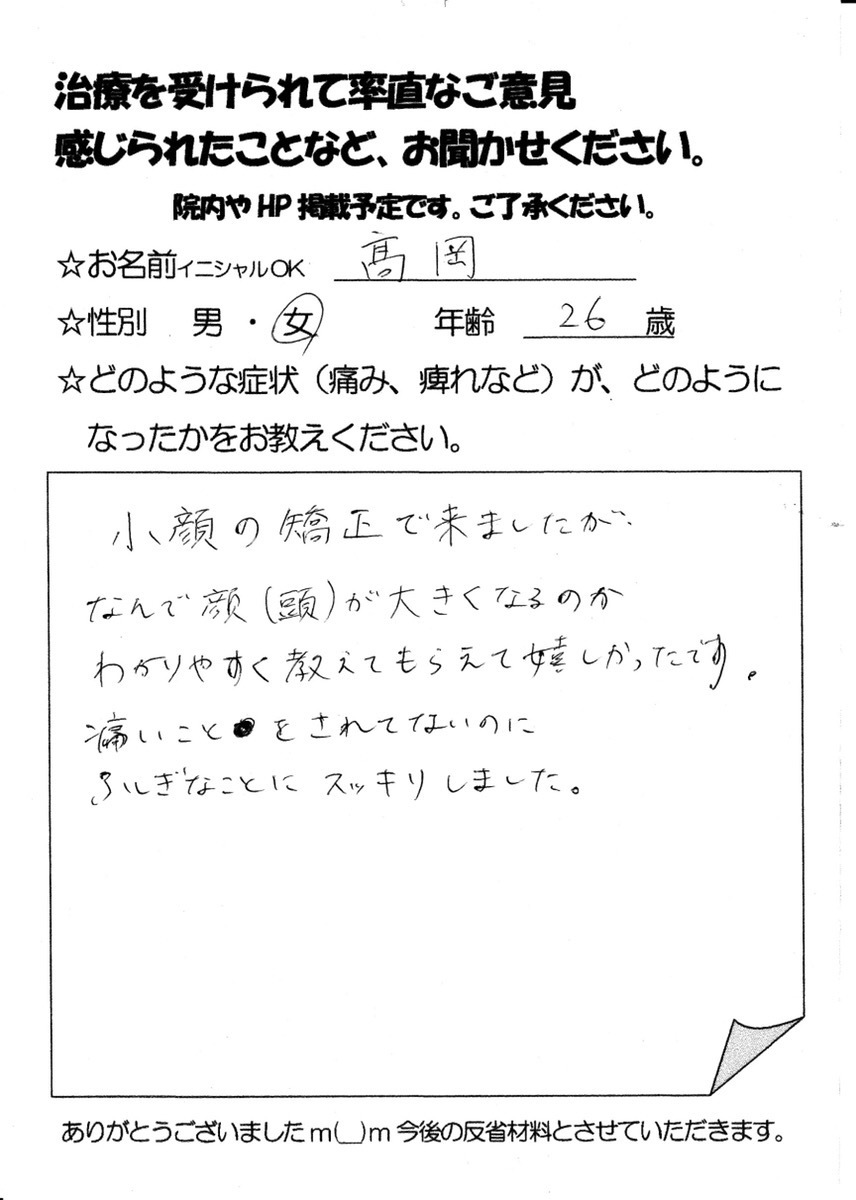 治療を受けられて率直なご意見
感じられたことなど、お聞かせください。
院内やHP掲載予定です。ご了承ください。
☆お名前イニシャルOK 髙岡
☆性別 男・女 年齢 26 歳
☆どのような症状(痛み、痺れなど)が、どのように
なったかをお教えください。
小顔の矯正で来ましたが
なんで顔(頭)が大きくなるのか
わかりやすく教えてもらえて嬉しかったです。
痛いことをされてないのに
ふしぎなことにスッキリしました。
ありがとうございましたm(__)m今後の反省材料とさせていただきます。